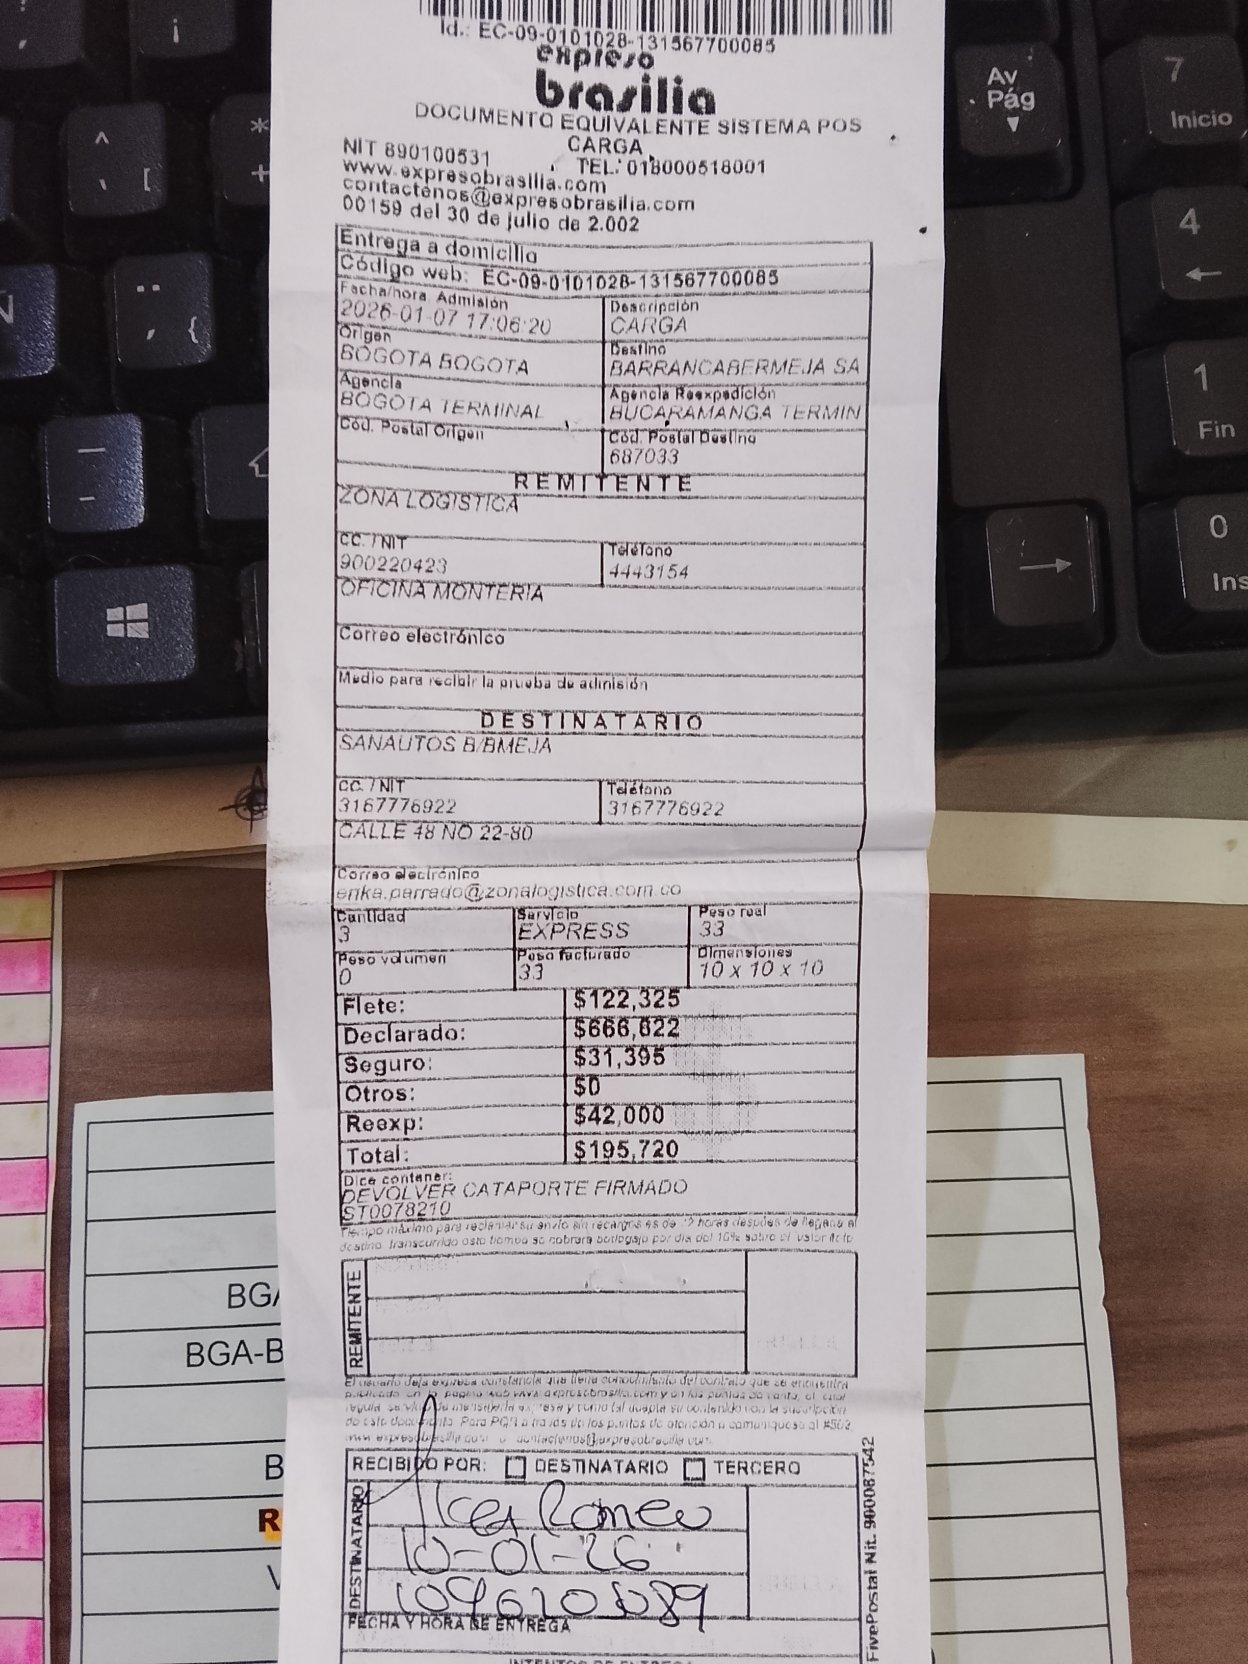 Id.: EC-09-0101028-131567700085
expreso
brasilia
DOCUMENTO EQUIVALENTE SISTEMA POS
CARGA
NIT 890100531 TEL: 018000518001
www.expresobrasilia.com
contactenos@expresobrasilia.com
00159 del 30 de julio de 2.002
Entrega a domicilio
Código web: EC-09-0101028-131567700085
Fecha/hora Admisión Descripción
2026-01-07 17:06:20 CARGA
Origen Destino
BOGOTA BOGOTA BARRANCABERMEJA SA
Agencia Agencia Reexpedición
BOGOTA TERMINAL BUCARAMANGA TERMIN
Cód. Postal Origen Cód. Postal Destino
687033
REMITENTE
ZONA LOGISTICA
CC. / NIT Teléfono
900220423 4443154
OFICINA MONTERIA
Correo electrónico
Medio para recibir la prueba de admisión
DESTINATARIO
SANAUTOS B/BMEJA
CC. / NIT Teléfono
3167776922 3167776922
CALLE 48 NO 22-80
Correo electrónico
erika.parrado@zonalogistica.com.co
Cantidad Servicio Peso real
3 EXPRESS 33
Peso volumen Peso facturado Dimensiones
0 33 10 x 10 x 10
Flete: $122,325
Declarado: $666,622
Seguro: $31,395
Otros: $0
Reexp: $42,000
Total: $195,720
Dice contener:
DEVOLVER CATAPORTE FIRMADO
ST0078210
Tiempo máximo para reclamar su envío sin recargos es de 72 horas después de llegada al
destino. Transcurrido este tiempo se cobrará bodegaje por día del 10% sobre el valor flete
REMITENTE
El usuario deja expresa constancia que tiene conocimiento del contrato que se encuentra
publicado en la pagina web www.expresobrasilia.com y en los puntos de venta, el cual
de este documento. Para PQR a través de los puntos de atención o comuniquese al #502
www.expresobrasilia.com o contactenos@expresobrasilia.com
RECIBIDO POR: DESTINATARIO TERCERO
DESTINATARIO
Romeo
10-01-26
FECHA Y HORA DE ENTREGA
INTENTOS DE ENTREGA
FivePostal Nit. 900087542
Av
Pág
7
Inicio
4
1
Fin
0
Ins
Ñ
BGA
BGA-B
B
R
V